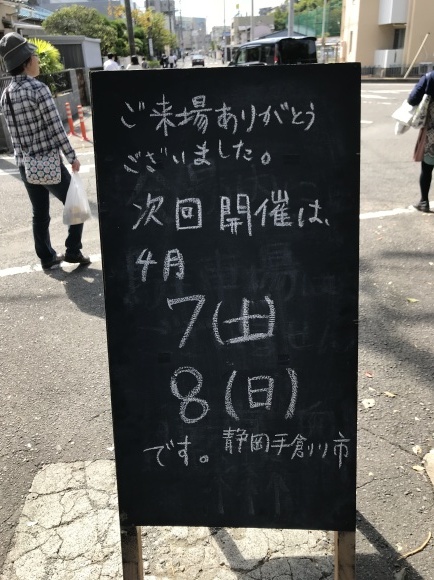 ご来場ありがとう
ございました。
次回開催は、
4月
7(土)
8(日)
です。静岡手創り市